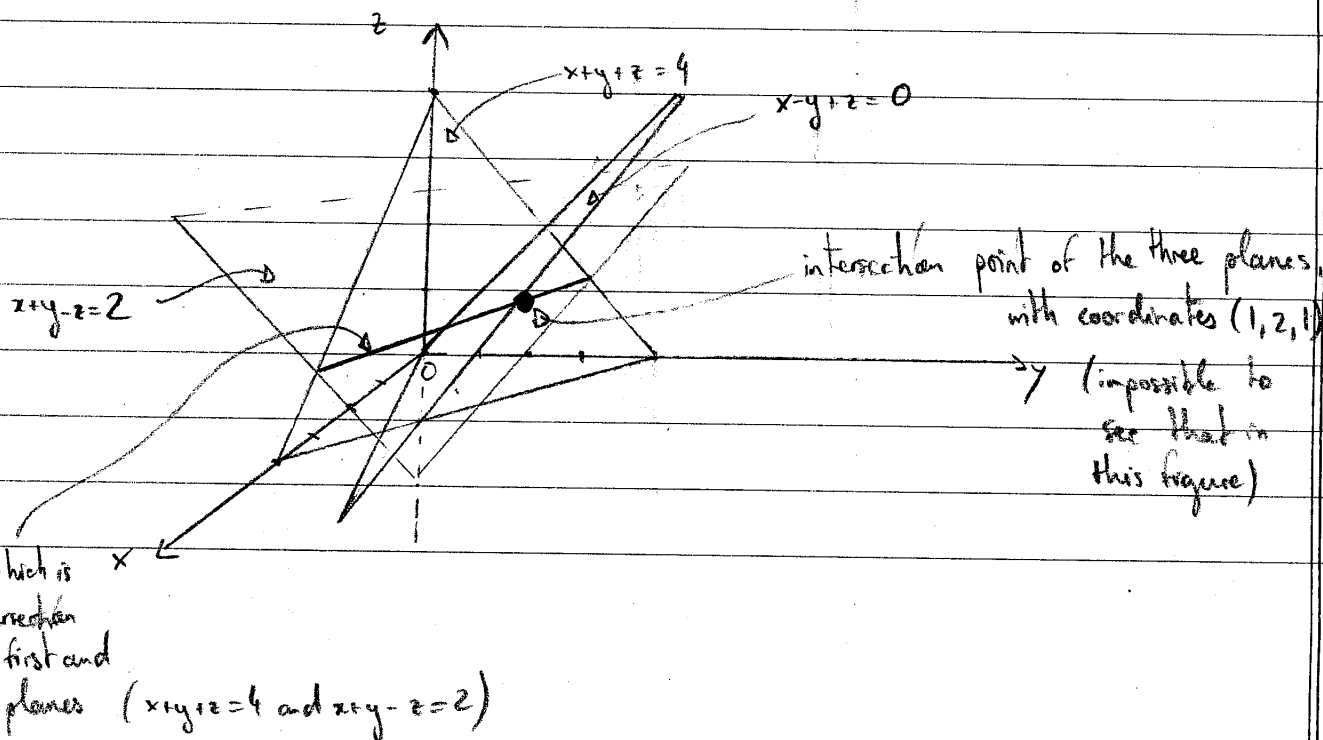 z
x+y+z=4
x-y+z=0
intersection point of the three planes,
with coordinates (1,2,1)
x+y-z=2
O
y
(impossible to
see that in
this figure)
x
hich is
rsection
first and
planes (x+y+z=4 and x+y-z=2)